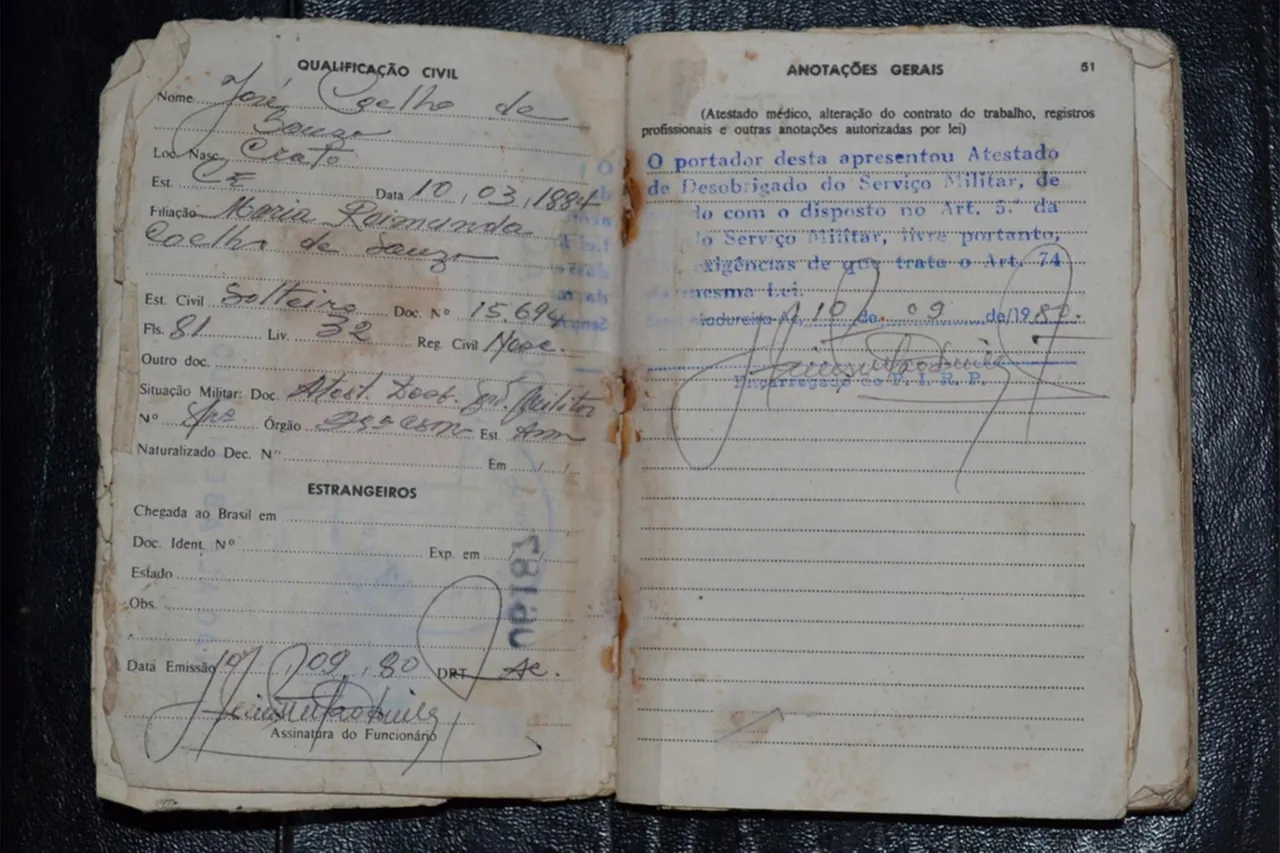 QUALIFICAÇÃO CIVIL
Nome José Coelho de
Souza
Loc. Nasc. Crato
Est. CE Data 10 , 03 , 1884
Filiação Maria Raimunda
Coelho de Souza
Est. Civil Solteiro Doc. Nº 15.694
Fls. 81 Liv. 32 Reg. Civil Nasc.
Outro doc.
Situação Militar: Doc. Atest. Militar
Nº Órgão Est. Am
Naturalizado Dec. Nº Em / /
ESTRANGEIROS
Chegada ao Brasil em
Doc. Ident. Nº Exp. em / /
Estado
Obs.
Data Emissão 10 / 09 , 80 DRT Ac.
Assinatura do Funcionário
ANOTAÇÕES GERAIS 51
(Atestado médico, alteração do contrato do trabalho, registros
profissionais e outras anotações autorizadas por lei)
O portador desta apresentou Atestado
de Desobrigado do Serviço Militar, de
do com o disposto no Art. 5.º da
o Serviço Militar, livre portanto,
exigências de que trata o Art. 74
da mesma Lei.
adureira Ac, 10 de 09 de/1980.
Encarregado do P. I. R. P.